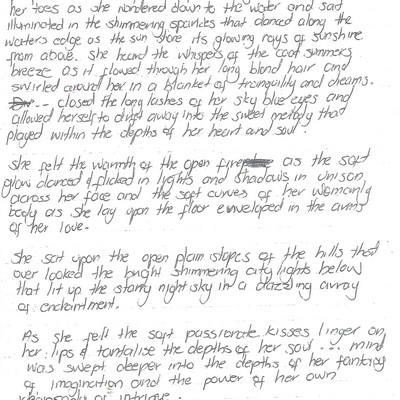 her toes as she wondered down to the water and sat
illuminated in the shimmering sparkles that danced along the
waters edge as the sun shore its glowing rays of sunshine
from above. She heard the whispers of the cool summers
breeze as it flowed through her long blond hair and
swirled around her in a blanket of tranquility and dreams.
-- closed the long lashes of her sky blue eyes and
allowed herself to drift away into the sweet melody that
played within the depths of her heart and soul.
She felt the warmth of the open fire as the soft
glow danced & flicked in lights and shadows in unison
across her face and the soft curves of her womanly
body as she lay upon the floor enveloped in the arms
of her love.
She sat upon the open plain slopes of the hills that
over looked the bright shimmering city lights below
that lit up the starry night sky in a dazzling array
of enchantment.
As she felt the soft passionate kisses linger on
her lips & tantalise the depths of her soul ... mind
was swept deeper into the depths of her fantasy
of imagination and the power of her own
rhapsody of intrigue.